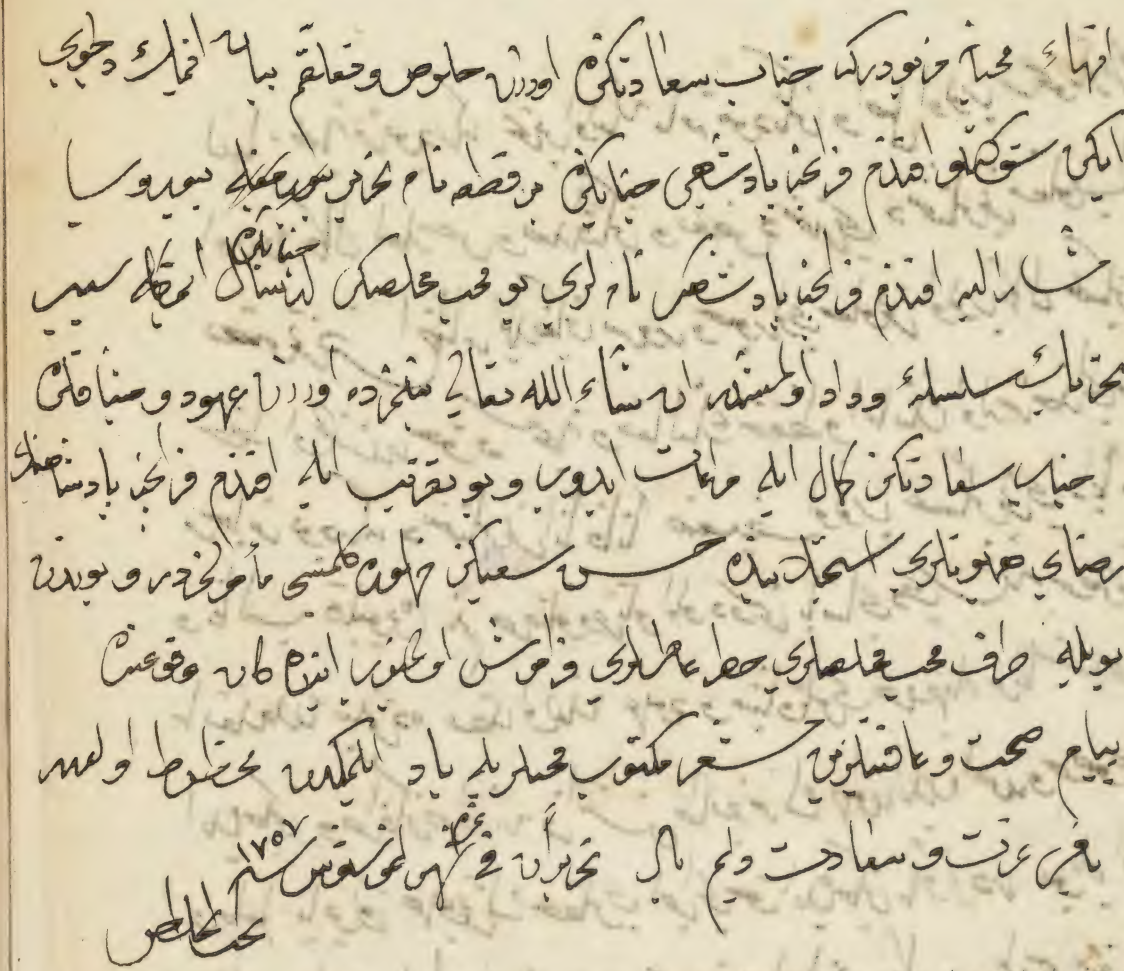 انهاء محبانه مز بودركه جناب سعادتكزه اولان خلوص و تعلقم بيان ايتمك وجوبي
ايكن شوكتلو افندم فرانچه پادشاهى جنابكزه بر قطعه نامه تحرير بيوروب
مشار اليه افندم فرانچه پادشاهنك نامه لرى بو محب مخلصكز جنابكزه ارسال ايتمكله سبب
تحريك سلسلهٔ وداد اولمشدر ان شاء الله تعالى بينمزده اولان عهود و ميثاقلره
جناب سعادتكز كمال ايله مراعات ايدوب و بو تقريب ايله افندم فرانچه پادشاهنك
رضاى همايونلرى استجلابنده حسن سعيكز ظهوره كلمسى مأمولمزدر و بوندن
بويله طرف محب مخلصلرى خاطر عاطرلرى فراموش اولنميوب
پيام صحت و عافيتلرينى مشعر مكتوب محبلريله ياد ايلمكدن محظوظ اولمه
باقى عزت و سعادت دايم باد تحريرا فى غره شهر اغوستوس سنه ١٧٥٧
محب المخلص